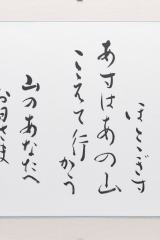 ほとゝぎす
あすはあの山
こえて行
かう
山のあなたへ
お月さま